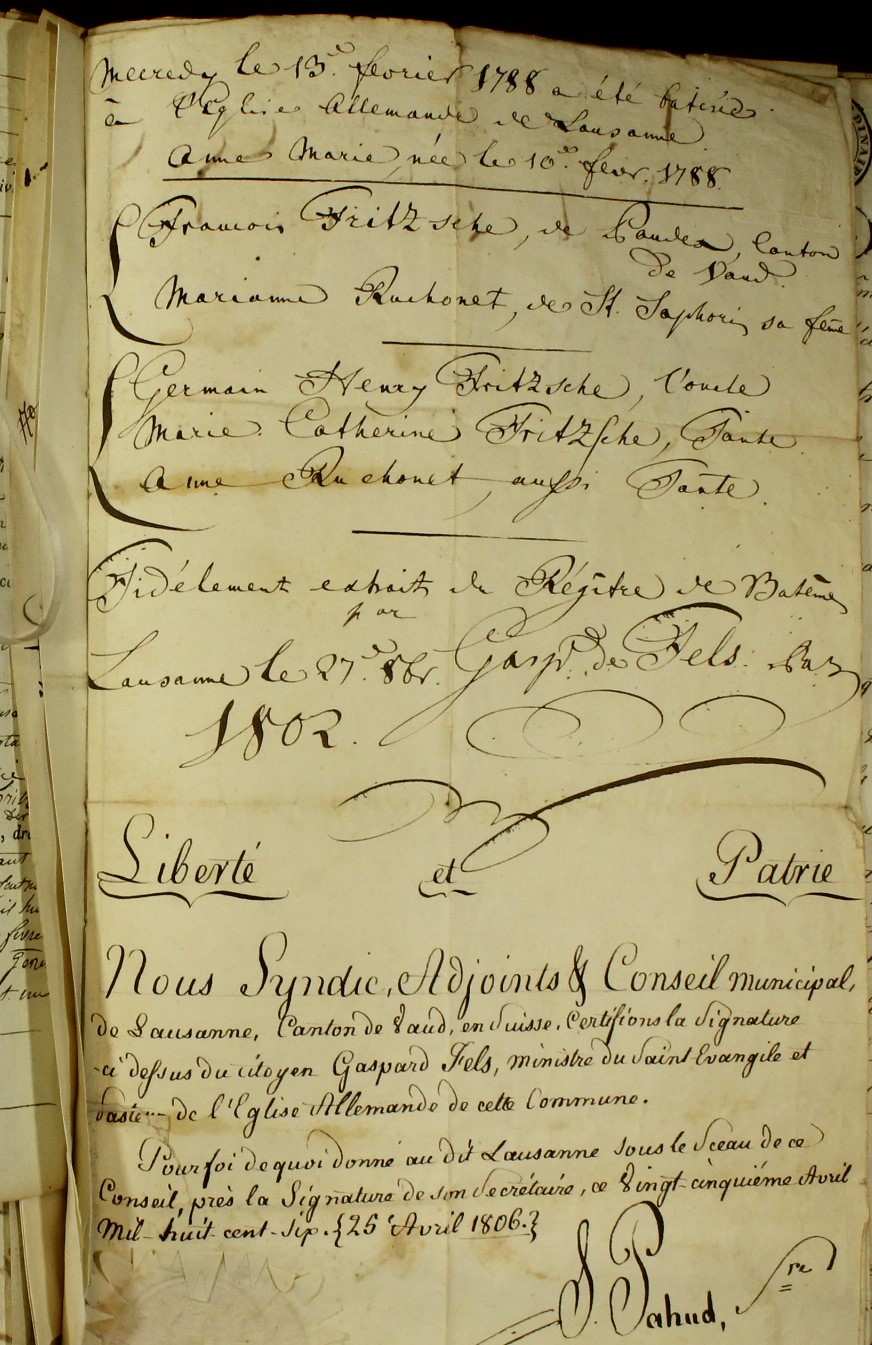 Mecredy le 13e. fevrier 1788 a été batisée
à l'Eglise Allemande de Lausanne
Anne Marie, née le 10e. fevr. 1788.
François Fritzsche, de Paudex, Canton
de Vaud.
Marianne Ruchonet, de St. Saphorin sa feme
Germain Henry Fritzsche, l'oncle
Marie Catherine Fritzsche, Tante
Anne Ruchonet, aussi Tante.
Fidélement extrait du Régitre de Batême
par
Lausanne le 27e. 8br. Gaspd. de Fels.
1802.
Liberté et Patrie
Nous Syndic, Adjoints & Conseil municipal,
de Lausanne, Canton de Vaud, en Suisse, Certifions la Signature
ci dessus du citoyen Gaspard Fels, ministre du Saint Evangile et
de l'Eglise Allemande de cette Commune.
Pour foi de quoi donné au dit Lausanne sous le Sceau de ce
Conseil, près la Signature de son Secrétaire, ce Vingt-cinquiéme Avril
Mil-huit-cent-six. {25e Avril 1806.}
S. Pahud, Sre